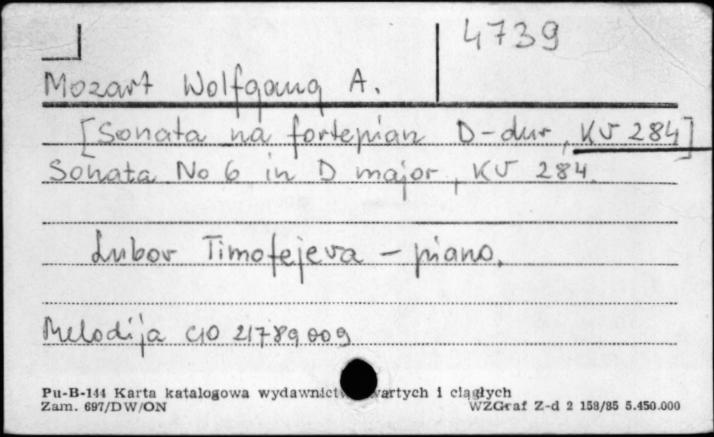 4739
Mozart Wolfgang A.
[Sonata na fortepian D-dur, KV 284]
Sonata No 6 in D major, KV 284.
Lubov Timofejeva – piano.
Melodija C10 21789 009
Pu-B-144 Karta katalogowa wydawnictw zwartych i ciągłych
Zam. 697/DW/ON WZGraf Z-d 2 158/85 5.450.000